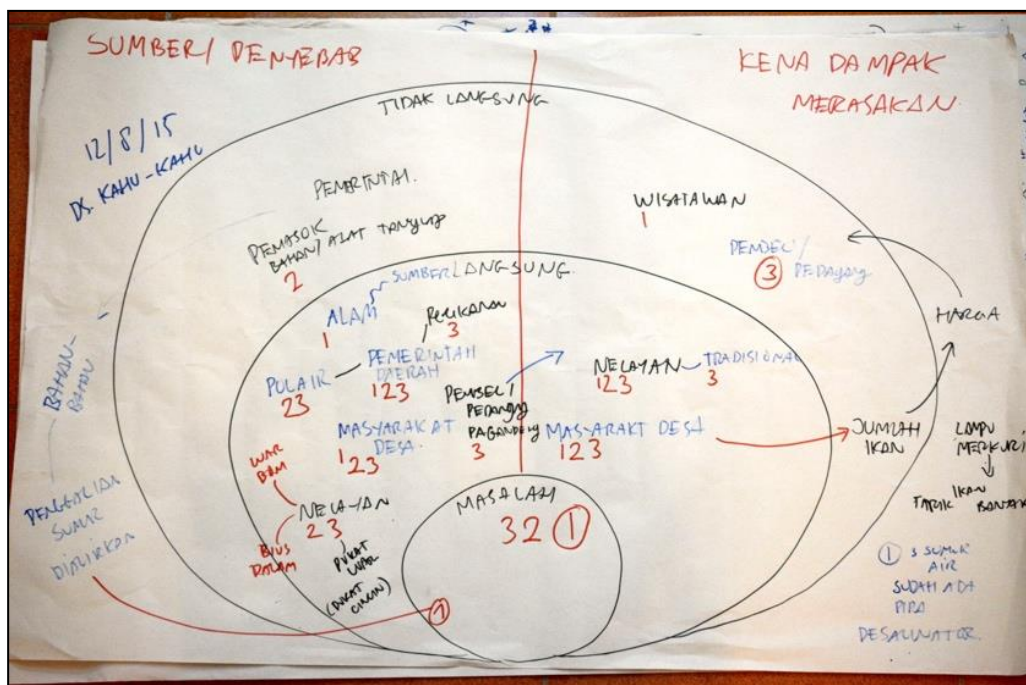 SUMBER/ PENYEBAB
KENA DAMPAK
MERASAKAN.
12/8/15
DS. KAHU-KAHU
TIDAK LANGSUNG
PEMERINTAH.
PEMASOK
BAHAN/ ALAT TANGKAP
2
WISATAWAN
1
PEMBELI/
PEDAGANG
3
SUMBER LANGSUNG
ALAM
1
PERIKANAN
3
PULAIR
23
PEMERINTAH
DAERAH
123
PEMBELI
PEDANGG
3
NELAYAN
123
TRADISIONAL
3
MASYARAKAT
DESA.
1 23
MASYARAKT DESA
123
LUAR
BOM
NELAYAN
23
BIUS
DALAM
PUKAT
(PUKAT
CINCIN)
MASALAH
32 1
1
BAHAN-
BAHAN
SUMUR
DIALIRKAN
HARGA
JUMLAH
IKAN
LAMPU
MERKURI
TARIK IKAN
BANYAK
1 3 SUMUR
AIR
SUDAH ADA
PIPA
DESALINATOR.